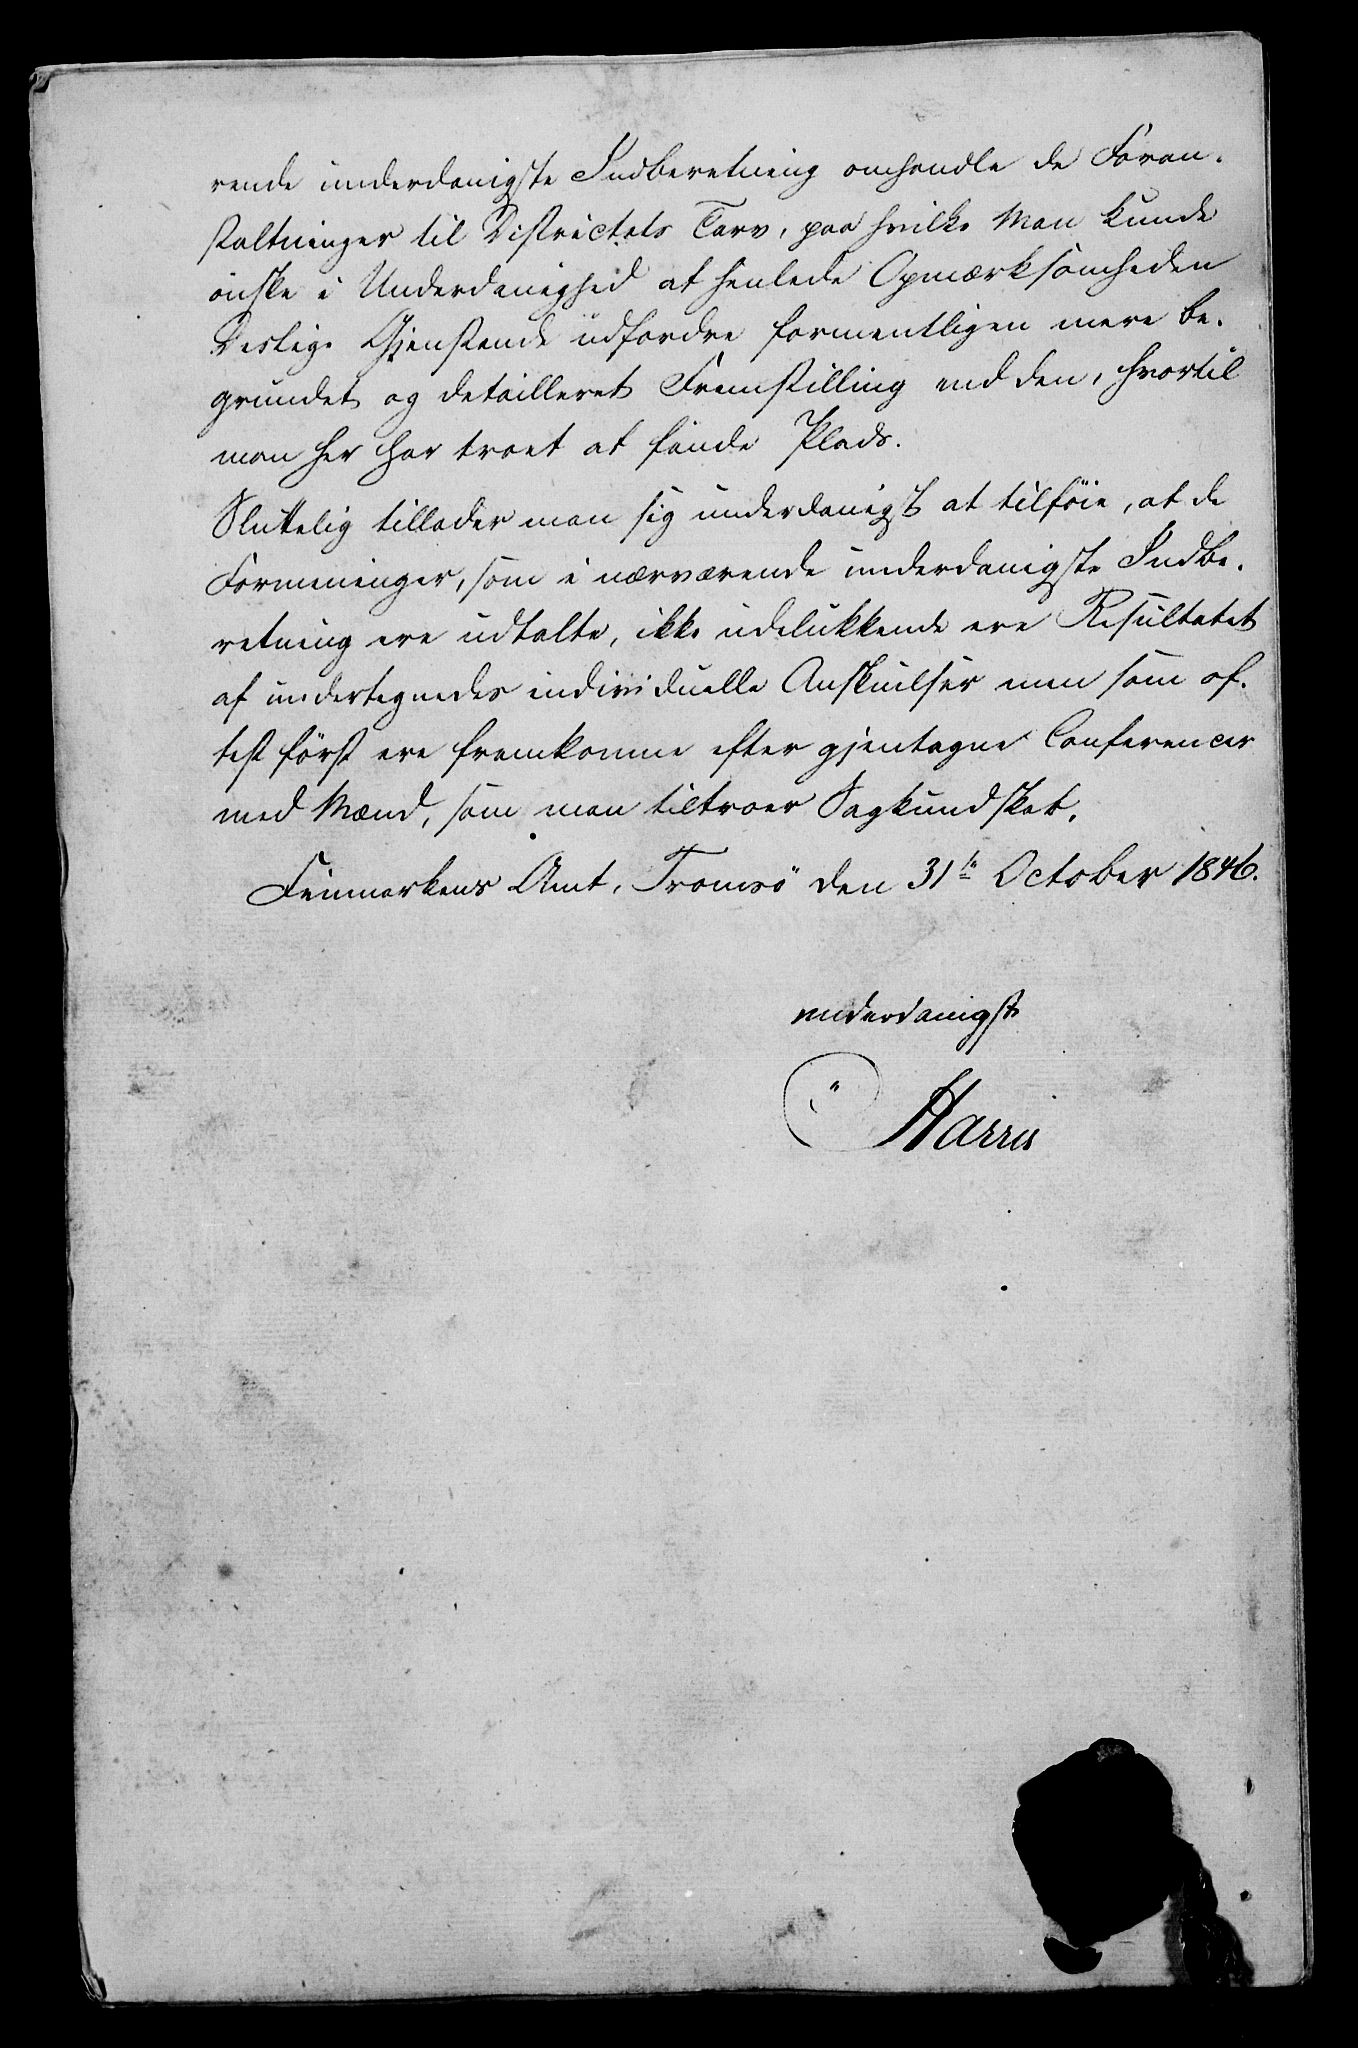 rende underdanigste Indberetning omhandle de Foran-
staltninger til Districtets Tarv, paa hvilke man kunde
önske i Underdanighed at henlede Opmærksomheden
Deslige Gjenstande udfordre formentligen mere be-
grundet og detailleret Fremstilling end den, hvortil
man her har troet at finde Plads.
Sluttelig tillader man sig underdanigst at tilföie, at de
Formeninger, som i nærværende underdanigste Indbe-
retning ere udtalte, ikke udelukkende ere Resultatet
af undertegnedes individuelle Anskuelser men som of-
test först ere fremkomne efter gjentagne Conferencer
med Mænd, som man tiltroer Sagkundskab.
Finmarkens Amt, Tromsö den 31te October 1846.
underdanigst
Harris